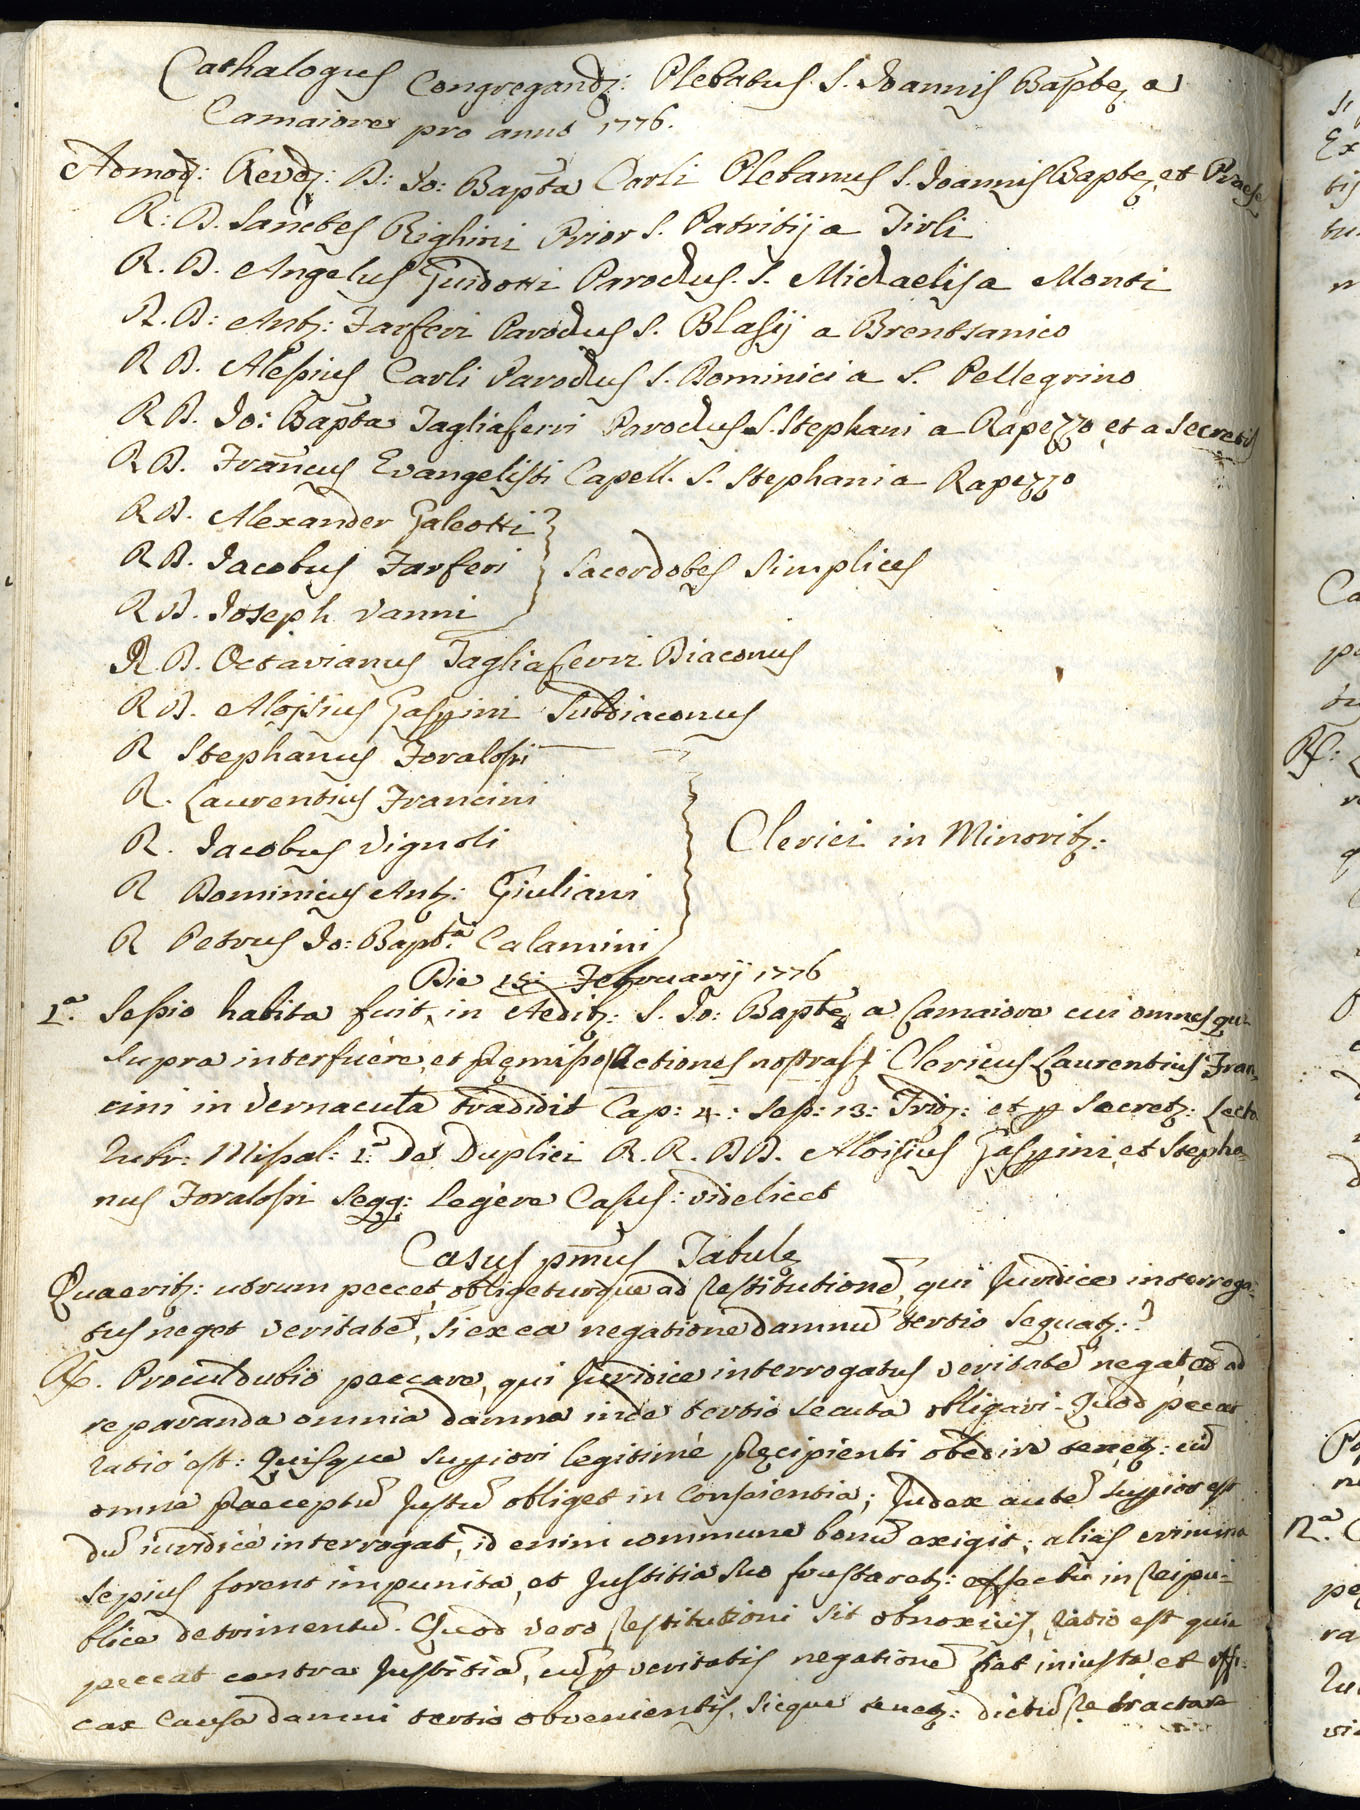 Cathalogus Congregandz: Plebatus S. Joannis Baptę a
Camaiore pro anno 1776.
Admodz: Revdz: D: Jo: Bapta Carli Plebanus S. Joannis Baptę et Praese
R: D. Sanctes Righini Prior S. Patritij a Tirli
R. D. Angelus Guidotti Parochus S. Michaelis a Monti
R. D: Antz: Farferi Parochus S. Blasij a Brentsanico
R D. Alessius Carli Parochus S. Dominici a S. Pellegrino
R D. Jo: Bapta Tagliaferri Parochus S. Stephani a Rapezzo et a Secretis
R D. Francus Evangelisti Capell. S. Stephani a Rapezzo
R D. Alexander Galeotti
R D. Jacobus Farferi Sacerdotes Simplices
R D. Joseph Vanni
R. D. Octavianus Tagliaferri Diaconus
R D. Aloisius Gaspini Subdiaconus
R Stephanus Foralossi
R. Laurentius Francini
R. Jacobus Vignoli Clerici in Minoritz:
R Dominicus Antz: Giuliani
R Petrus Jo: Bapta Calamini
Die 15: Februarij 1776
1.a Sessio habita fuit in Aeditz: S. Jo: Baptę a Camaiore cui omnes qui
supra interfuère, et Clericus Laurentius Fran-
cini in vernacula tradidit Cap: 4: Sess: 13: Tridz: et p Secretz: Lecta
Rubr: Missal: 1.a De Duplici R. R. D D. Aloisius Gaspini et Stepha-
nus Foralossi Segq: legère Casus: videlicet
Casus pmus Tabulę
Quaeritz: utrum peccet, obligeturque ad restitutionē, qui Juridice interroga-
tus neget veritatē, si ex ea negatione damnū tertio sequatz:?
R. Proculdubio peccare, qui Juridice interrogatus veritatē negat, et ad
reparanda omnia damna inde tertio secuta obligari. Quod peccat
ratio est: Quisque Suppiori legitimè Pręcipienti obedire tenetz: cū
omne Praeceptū Justū obliget in Conscientia; Judex autē suppior est
dū iuridicè interrogat, id enim commune bonū exigit; alias crimina
sępius forent impunita, et Justitia suo frustraretz: effectu in Reipu-
blicę detrimentū. Quod vero restitutioni sit obnoxius, ratio est quia
peccat contra Justitiā, cū p veritatis negationē fiat iniusta, et effi-
cax causa damni tertio obvenientis, sicque tenetz: dictū retractare